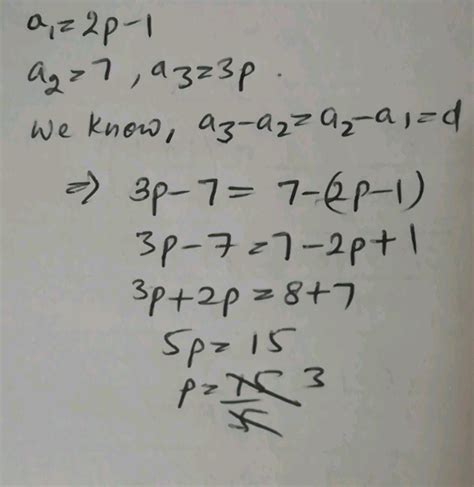 a₁=2p-1
a₂=7, a₃=3p.
We know, a₃-a₂=a₂-a₁=d
⇒ 3p-7=7-(2p-1)
3p-7=7-2p+1
3p+2p=8+7
5p=15
p=15/5 3